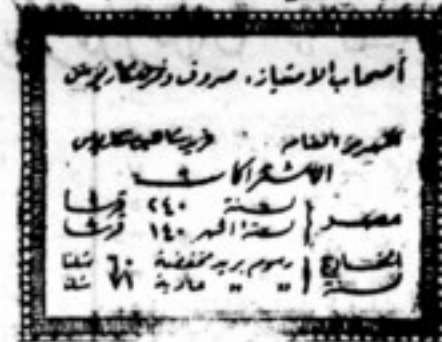 أصحاب الامتياز: صروف ونمر ومكاريوس
المدير العام
الاشتراكات
مصر لسنة ٢٤٠ قرشا
لستة أشهر ١٤٠ قرشا
الخارج رسوم بريد مخفضة ٦٠ شلنا
لسنة " " عادية ٧١ شلنا